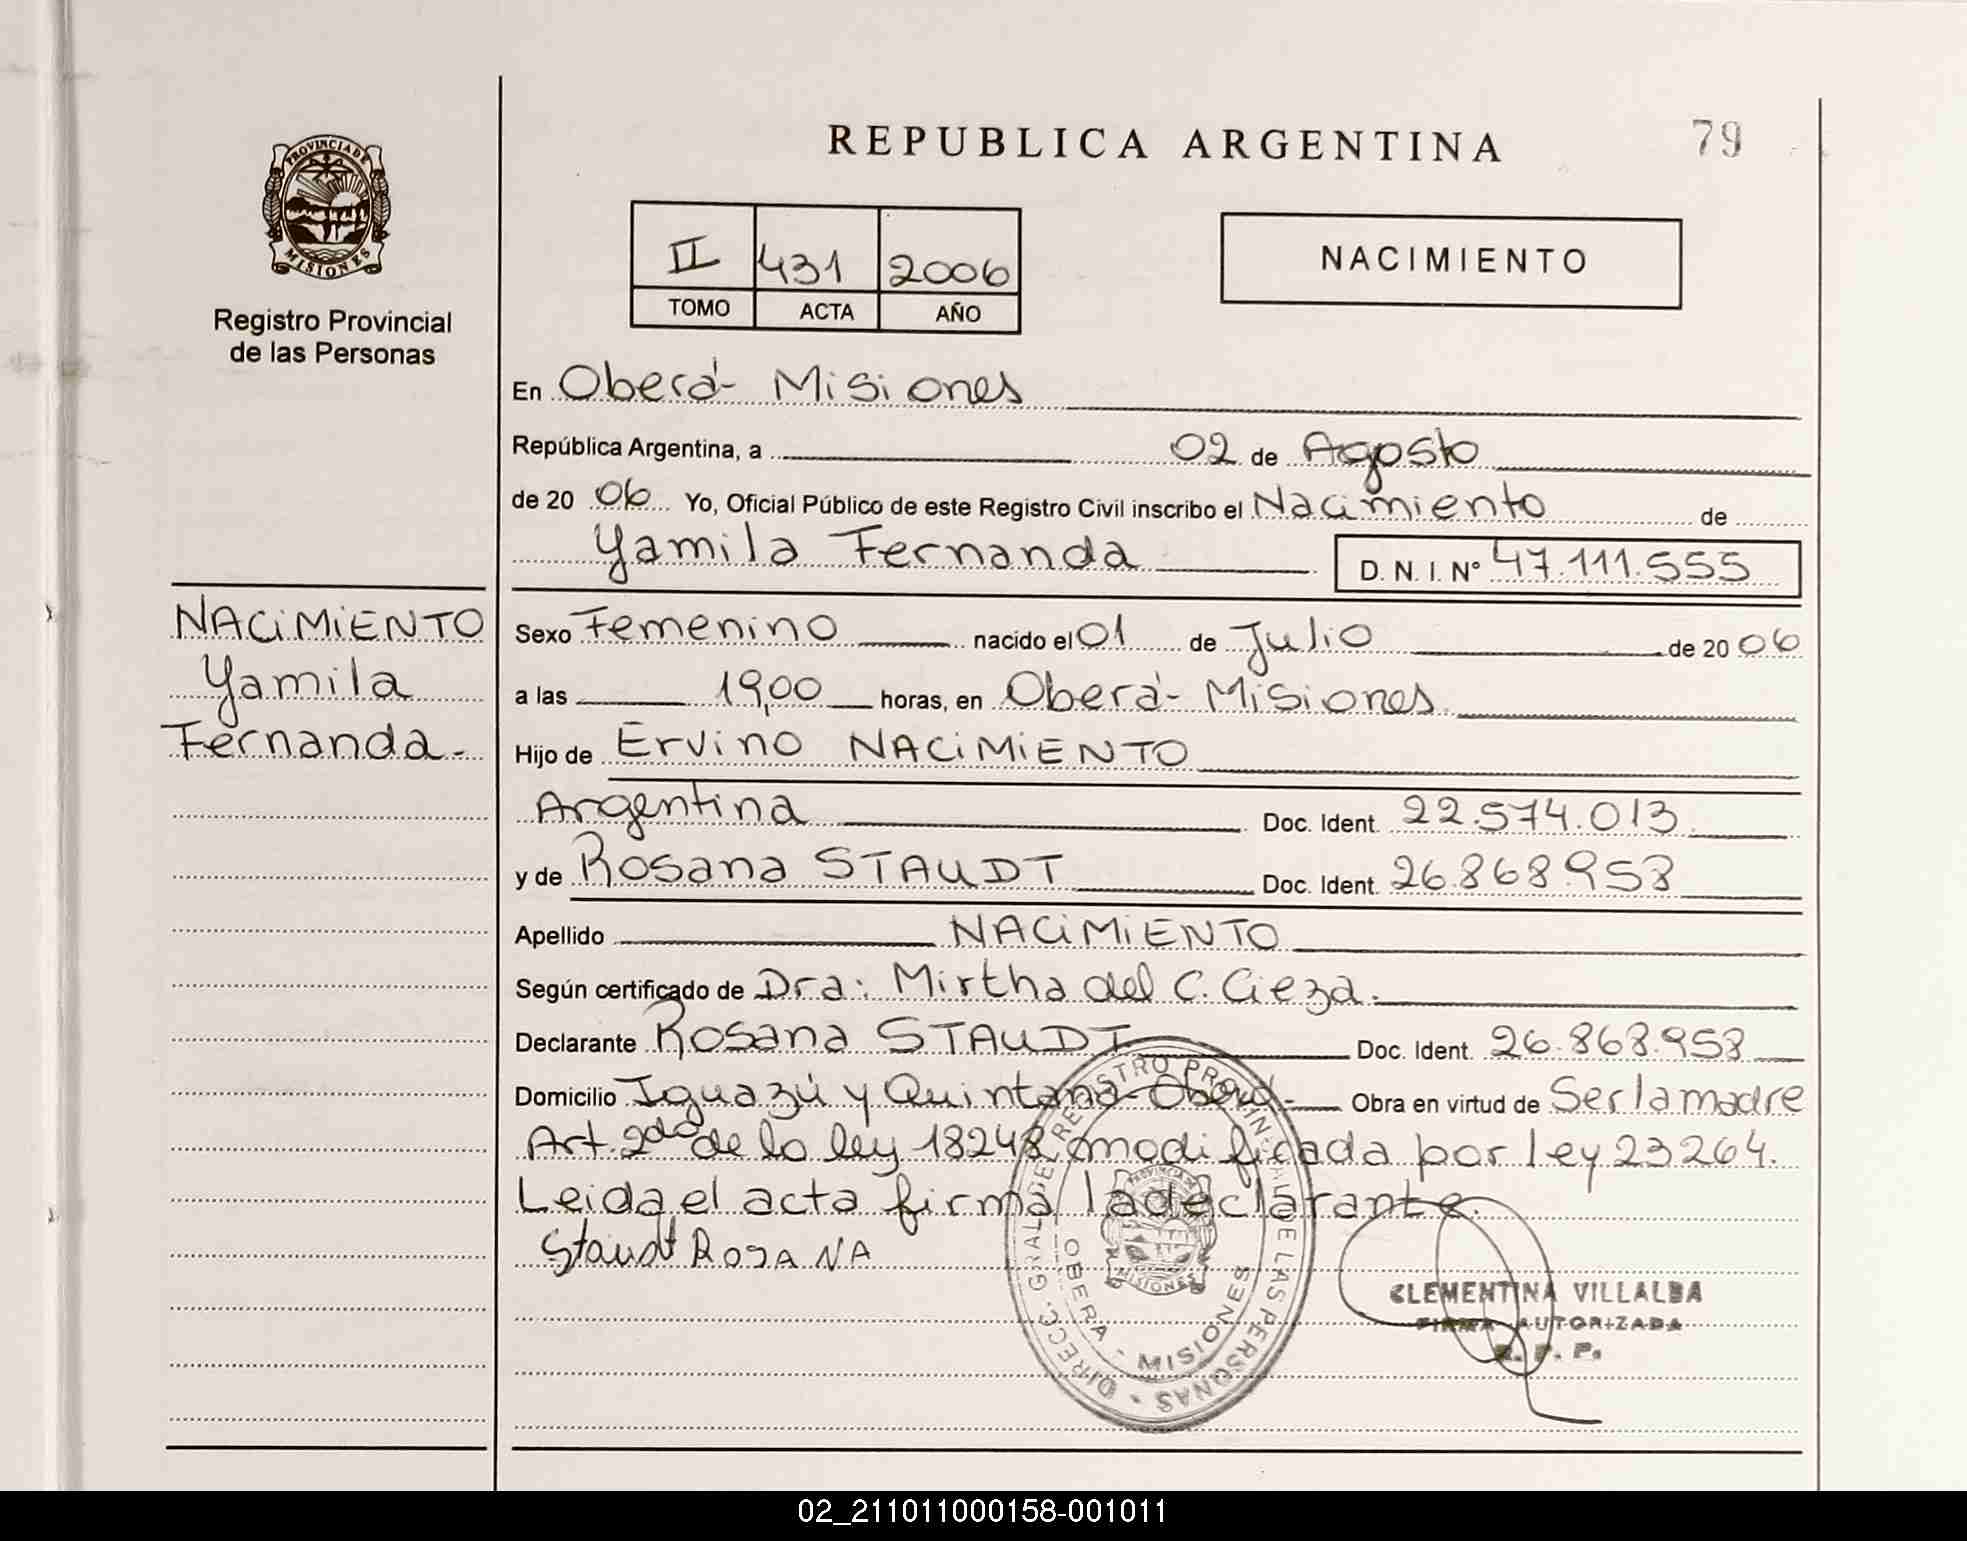 REPUBLICA ARGENTINA
79
PROVINCIA DE
MISIONES
Registro Provincial
de las Personas
II 431 2006
TOMO ACTA AÑO
NACIMIENTO
En Oberá- Misiones
República Argentina, a 02 de Agosto
de 20 06 Yo, Oficial Público de este Registro Civil inscribo el Nacimiento de
Yamila Fernanda D. N. I. Nº 47.111.555
NACIMIENTO
Yamila
Fernanda.-
Sexo Femenino nacido el 01 de Julio de 20 06
a las 19,00 horas, en Oberá- Misiones.
Hijo de Ervino NACIMIENTO
Argentina Doc. Ident. 22.574.013
y de Rosana STAUDT Doc. Ident. 26.868.958
Apellido NACIMIENTO
Según certificado de Dra: Mirtha del C. Cieza.
Declarante Rosana STAUDT Doc. Ident. 26.868.958
Domicilio Iguazú y Quintana- Oberá.- Obra en virtud de Ser la madre
Art. 2do de la ley 18248 modificada por ley 23264.
Leida el acta firma la declarante.
Staudt ROSANA
DIRECC. GRAL. DE REGISTRO PROVINCIAL DE LAS PERSONAS
PROVINCIA DE
MISIONES
OBERA - MISIONES
CLEMENTINA VILLALBA
FIRMA AUTORIZADA
R. P. P.
02_211011000158-001011